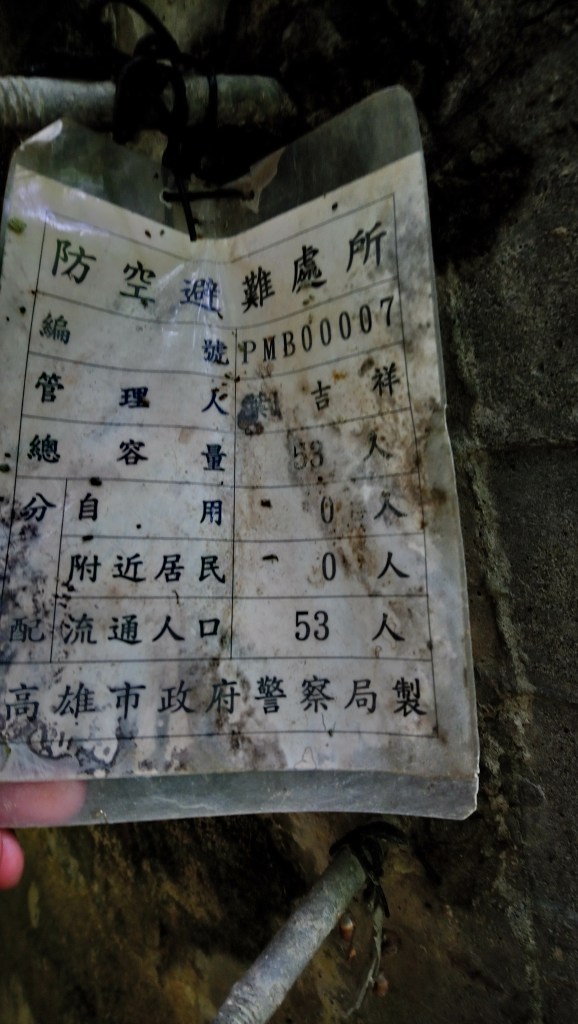 防空避難處所
編號 PMB00007
管理人 吉祥
總容量 53人
分配 自用 0人
附近居民 0人
流通人口 53人
高雄市政府警察局製